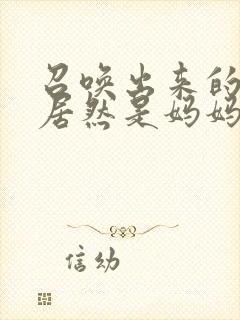 召唤出来的
居然是妈妈
信幼